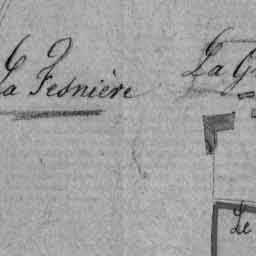 La Fesnière
La G
Le